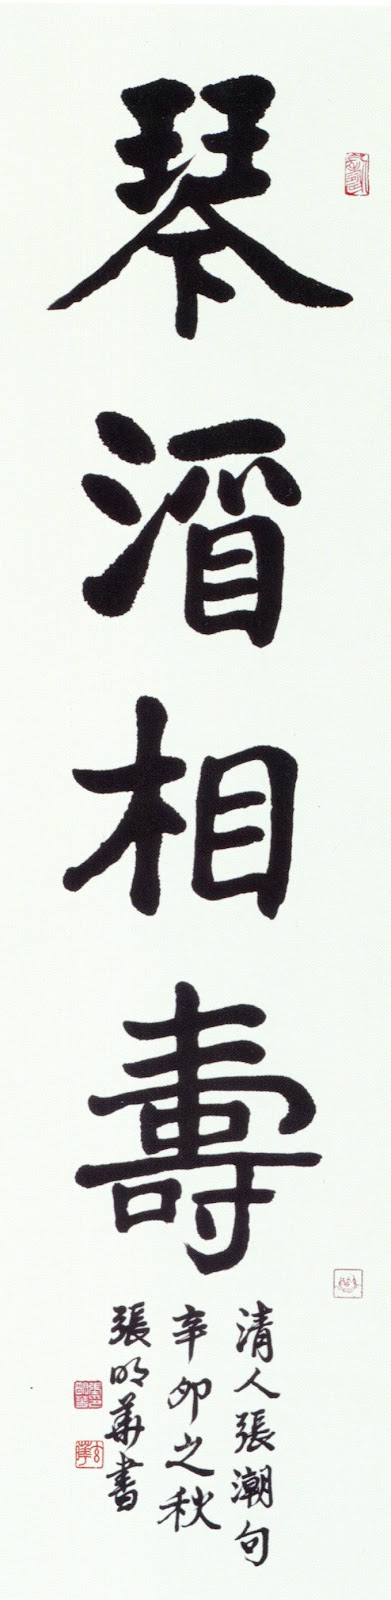 琴酒相壽
清人張潮句
辛卯之秋
張明華書